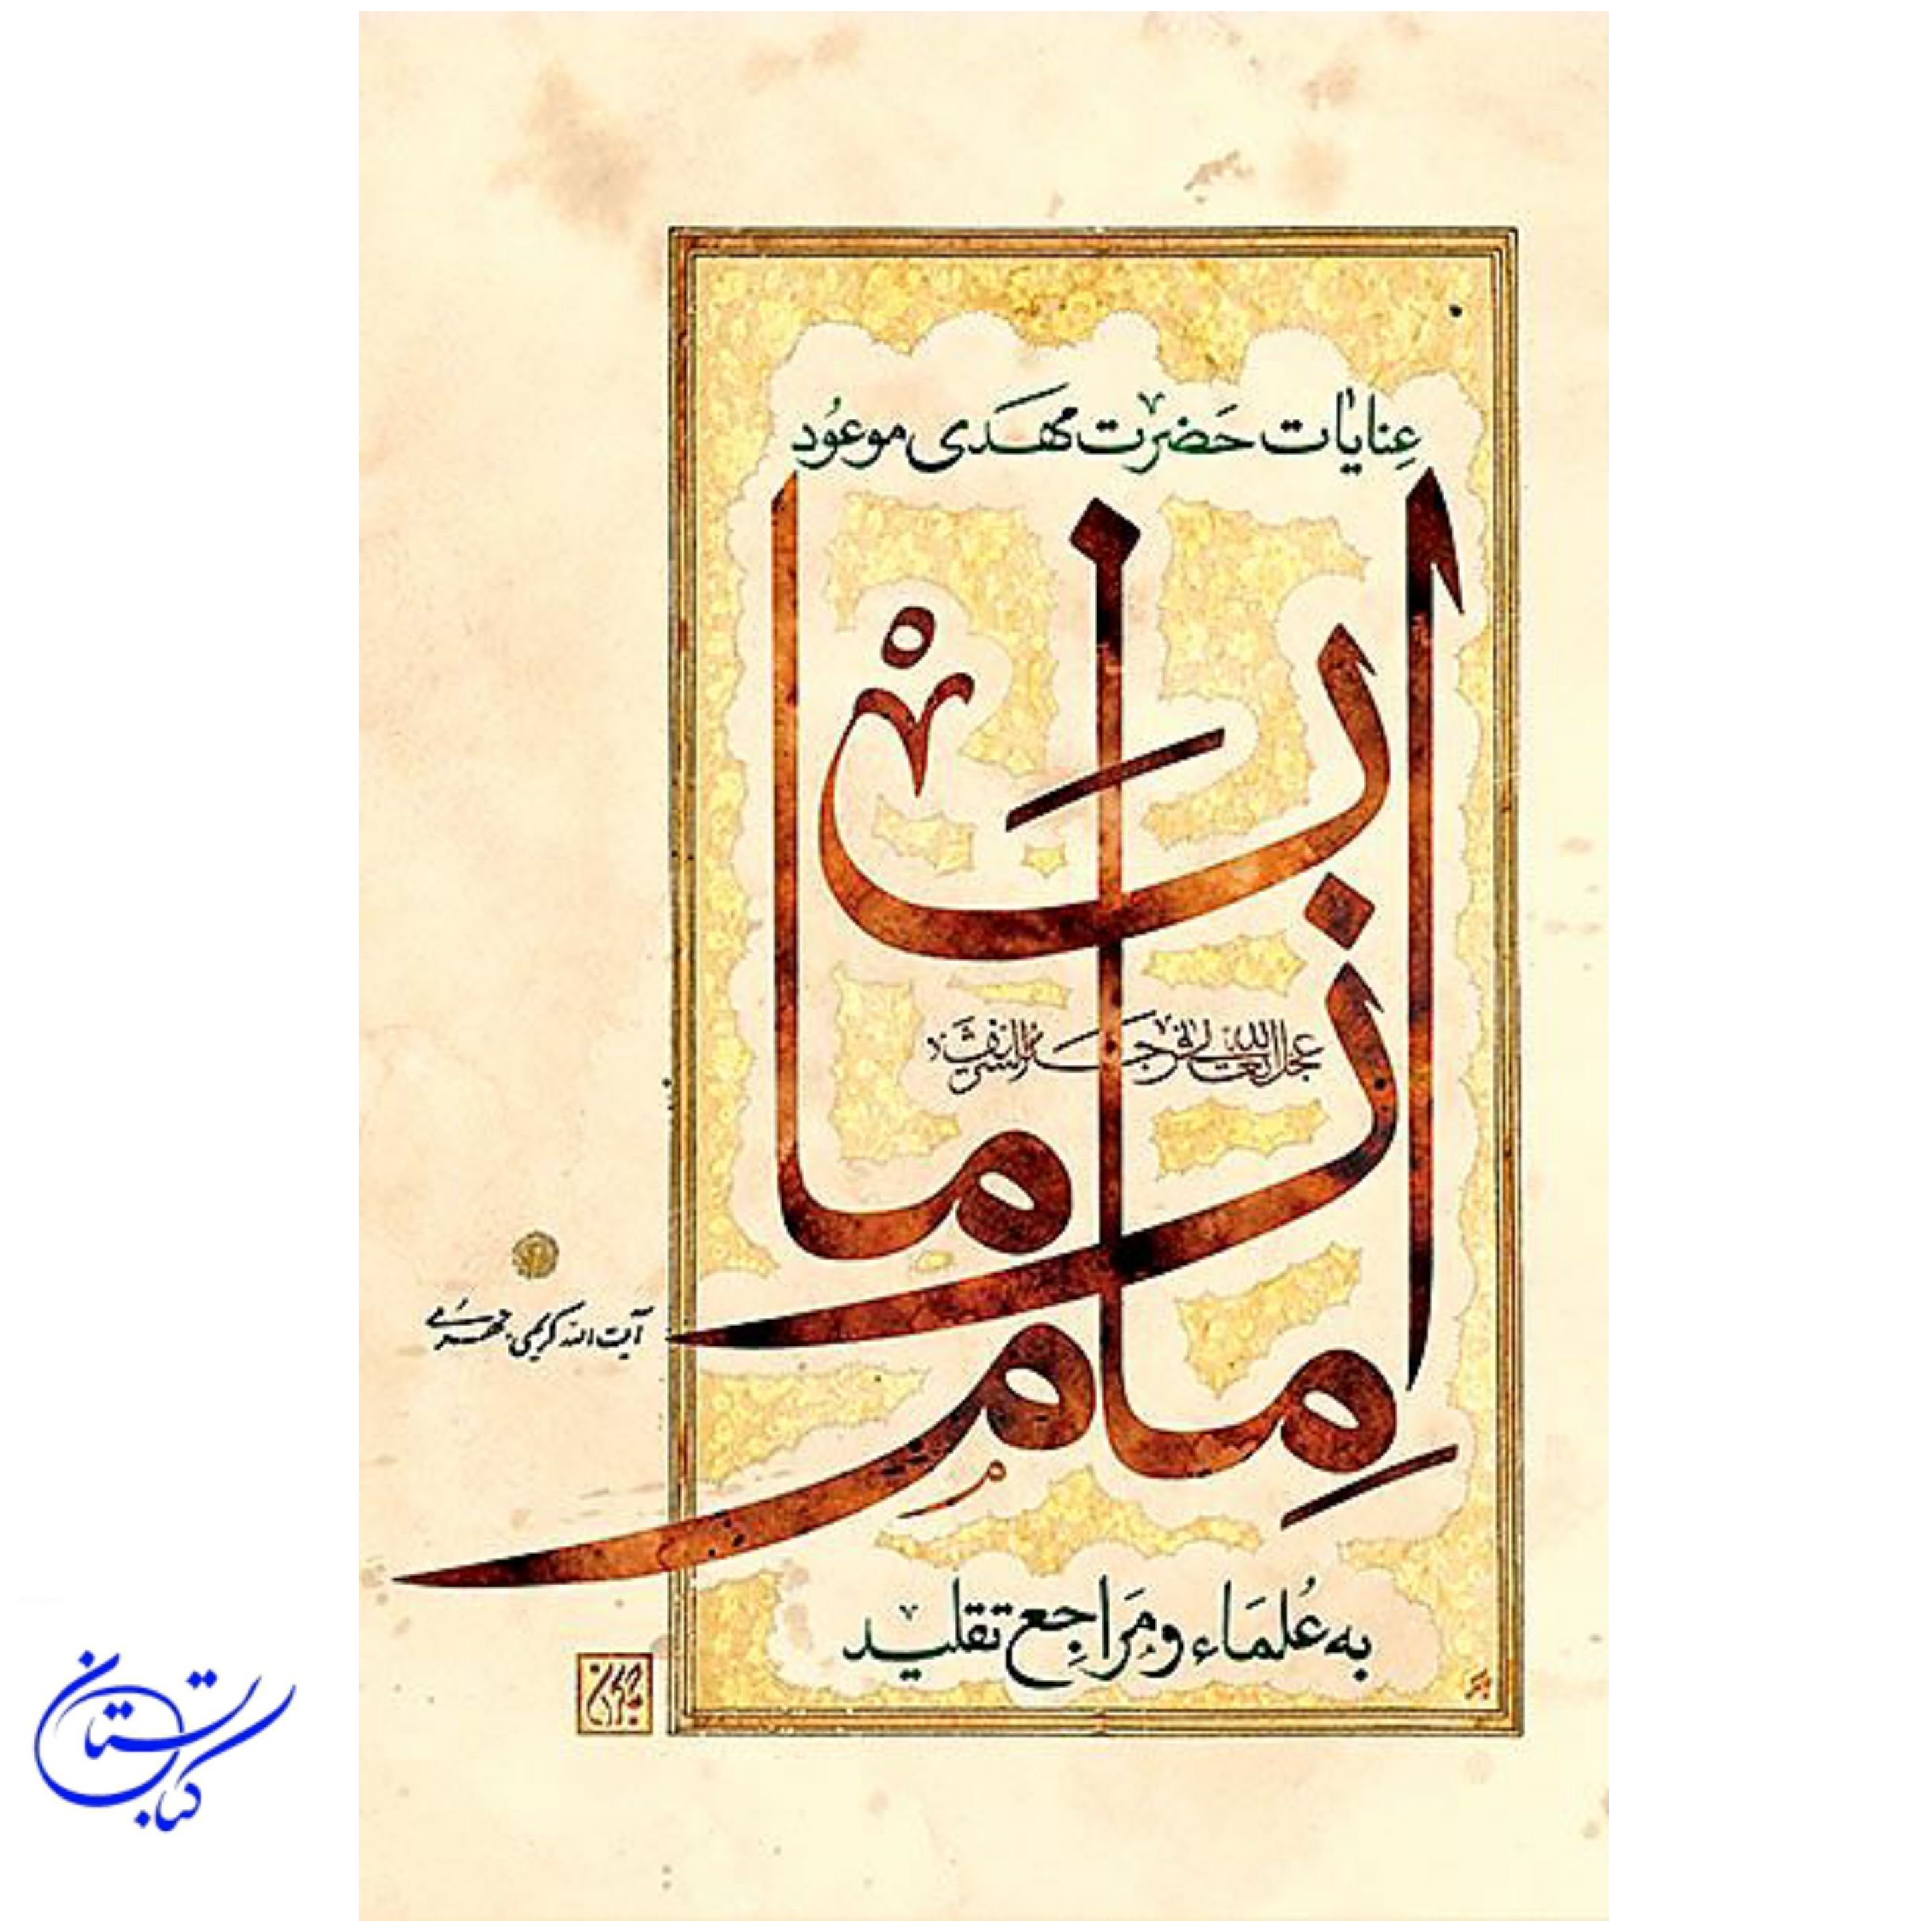 عِنایات حَضرت مهَدی موعُود
امام زمان
عجل الله تعالی فرجه الشریف
آیت الله کریمی جهرمی
به عُلمَاء و مَراجِع تقلید
کتابستان